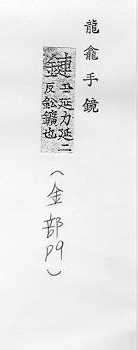 龍龕手鏡
鏈
丑延力延二
反鈆鑛也
(金部P9)